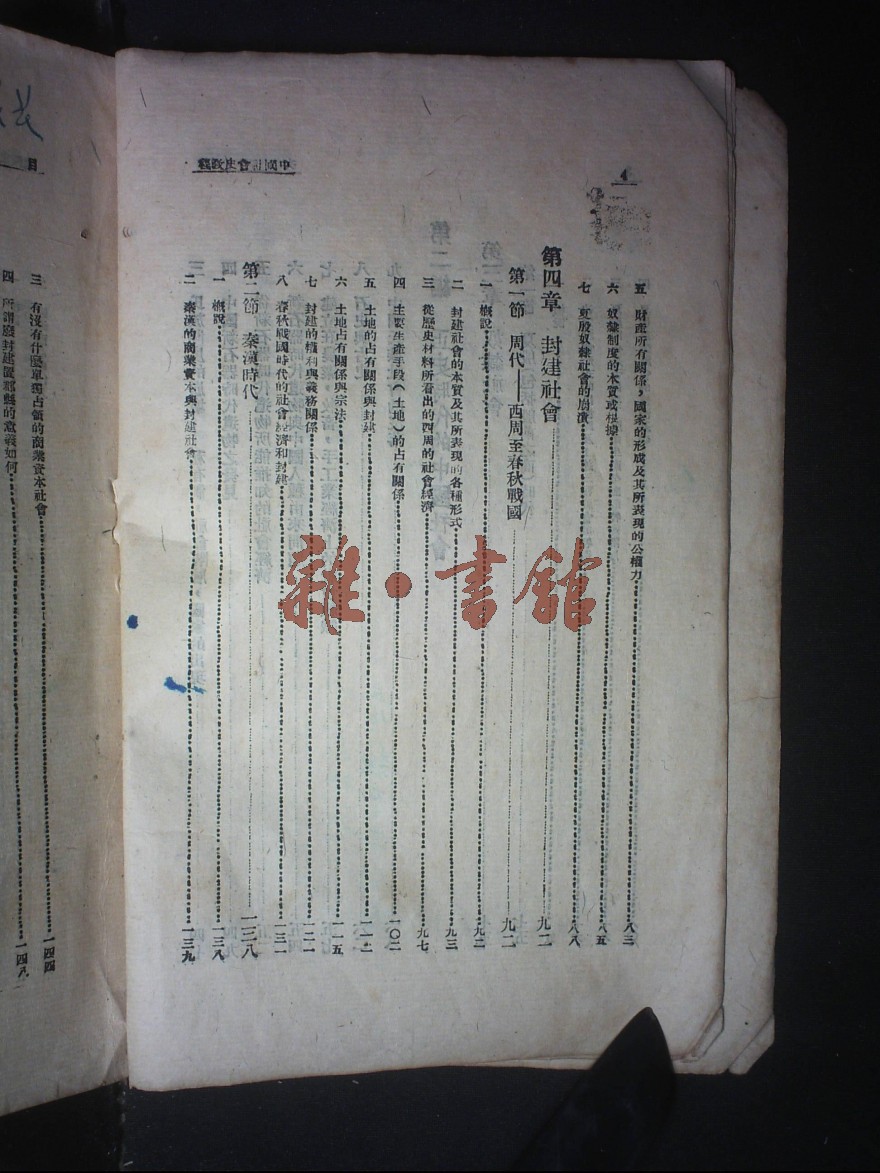 4
中國社會史教程
五 財產所有關係，國家的形成及其所表現的公權力 八三
六 奴隸制度的本質或根據 八五
七 夏殷奴隸社會的崩潰 八八
第四章 封建社會 九二
第一節 周代——西周至春秋戰國 九二
一 概說 九二
二 封建社會的本質及其所表現的各種形式 九三
三 從歷史材料所看出的西周的社會經濟 九七
四 主要生產手段（土地）的占有關係 一〇二
五 土地的占有關係與封建 一一二
六 土地占有關係與宗法 一一五
七 封建的權利與義務關係 一二一
八 春秋戰國時代的社會經濟和封建 一三一
第二節 秦漢時代 一三八
一 概說 一三八
二 秦漢的商業資本與封建社會 一三九
目
三 有沒有什麼單獨占領的商業資本社會 一四四
四 所謂廢封建置郡縣的意義如何 一四八
雜·書館